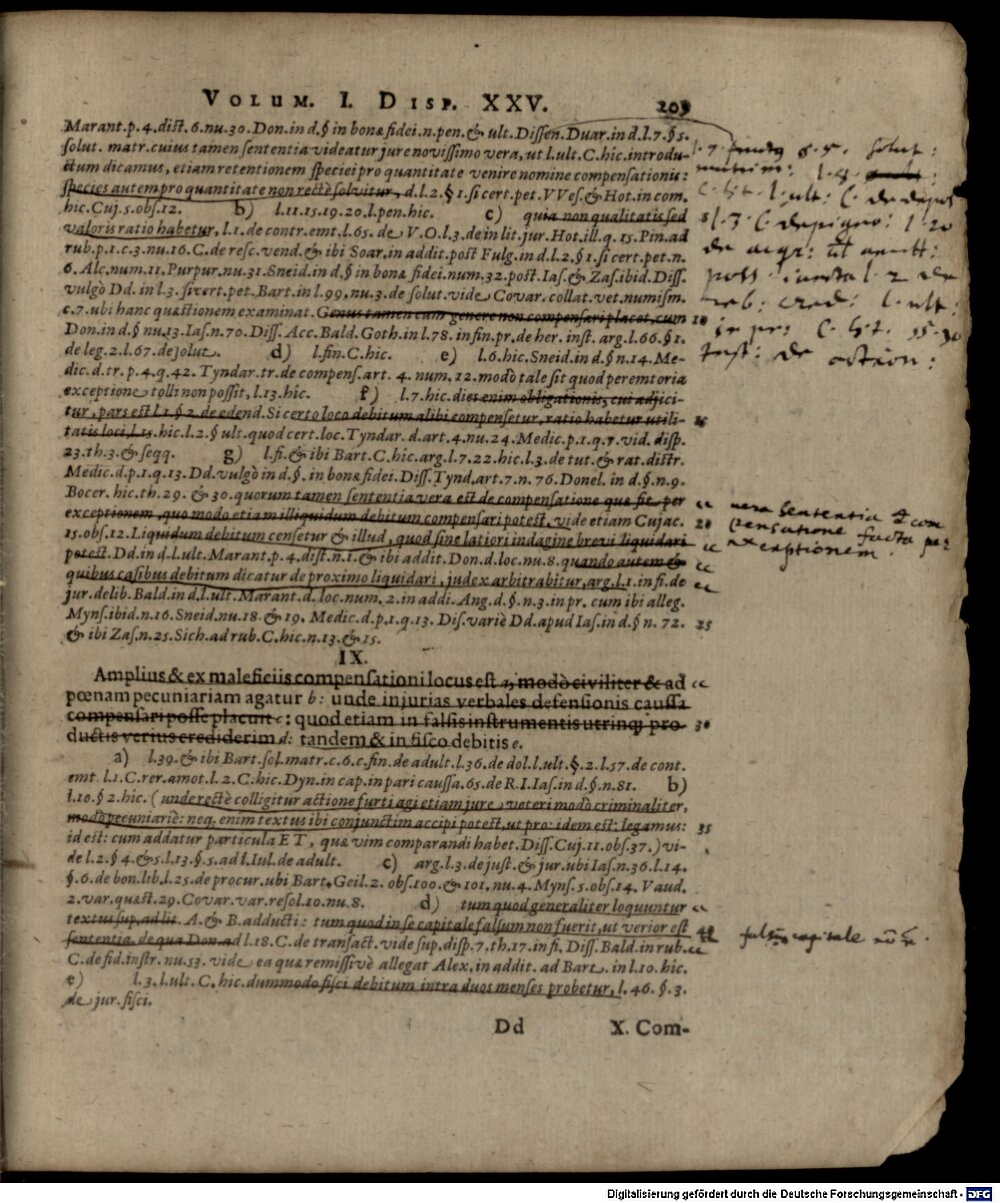 VOLUM. I. DISP. XXV. 209
Marant.p.4.dist.6.nu.30.Don.in d.§ in bonæ fidei.n.pen.& ult.Dissen.Duar.in d.l.7.§5.
solut. matr.cuius tamen sententia videatur jure novissimo vera, ut l.ult.C.hic.introdu-
ctum dicamus, etiam retentionem speciei pro quantitate venire nomine compensationis:
species autem pro quantitate non rectè solvitur, d.l.2.§1.si cert.pet.VVes.& Hot.in com.
hic.Cuj.5.obs.12. b) l.11.15.19.20.l.pen.hic. c) quia non qualitatis sed
valoris ratio habetur, l.1.de contr.emt.l.65.de V.O.l.3.de in lit.jur.Hot.ill.q.15.Pin.ad
rub.p.1.c.3.nu.16.C.de resc.vend.& ibi Soar.in addit.post Fulg.in d.l.2.§1.si cert.pet.n.
6.Alc.num.11.Purpur.nu.31.Sneid.in d.§ in bonæ fidei.num.32.post.Ias.& Zas.ibid.Diss.
vulgò Dd. in l.3.si cert.pet.Bart.in l.99.nu.3.de solut.vide Covar.collat.vet.numism.
c.7.ubi hanc quæstionem examinat. Genus tamen cum genere non compensari placet, cum 10
Don.in d.§ nu.13.Ias.n.70.Diss.Acc.Bald.Goth.in l.78.in fin.pr.de her.inst.arg.l.66.§1.
de leg.2.l.67.de solut. d) l.fin.C.hic. e) l.6.hic.Sneid.in d.§ n.14.Me-
dic.d.tr.p.4.q.42.Tyndar.tr.de compens.art. 4. num. 12.modò tale sit quod peremtoria
exceptione tolli non possit, l.13.hic. f) l.7.hic.dies enim obligationis, cui adjici-
tur, pars est l.1.§2.de edend.Si certo loco debitum alibi compensetur, ratio habetur utili-
tatis loci, l.15.hic.l.2.§ ult.quod cert.loc.Tyndar.d.art.4.nu.24.Medic.p.1.q.7.vid.disp.
23.th.3.& seqq. g) l.fi.& ibi Bart.C.hic.arg.l.7.22.hic.l.3.de tut.& rat.distr.
Medic.d.p.1.q.13.Dd.vulgò in d.§.in bonæ fidei.Diss.Tynd.art.7.n.76.Donel.in d.§.n.9.
Bocer.hic.th.29. & 30.quorum tamen sententia vera est de compensatione quæ fit per
exceptionem, quo modo etiam illiquidum debitum compensari potest, vide etiam Cujac. 20
15.obs.12.Liquidum debitum censetur & illud, quod sine latiori indagine brevi liquidari
potest.Dd.in d.l.ult.Marant.p.4.dist.n.1.& ibi addit.Don.d.loc.nu.8.quando autem &
quibus casibus debitum dicatur de proximo liquidari, judex arbitrabitur, arg.l.1.in fi.de
jur.delib.Bald.in d.l.ult.Marant.d.loc.num.2.in addi.Ang.d.§.n.3.in pr. cum ibi alleg.
Myns.ibid.n.16.Sneid.nu.18.& 19. Medic.d.p.1.q.13. Dis.variè Dd.apud Ias.in d.§ n. 72. 25
& ibi Zas.n.25.Sich.ad rub.C.hic.n.13.& 15.
IX.
Amplius & ex maleficiis compensationi locus est a, modò civiliter & ad
pœnam pecuniariam agatur b: unde injurias verbales defensionis caussa
compensari posse placuit c: quod etiam in falsis instrumentis utrinq; pro- 30
ductis verius crediderim d: tandem & in fisco debitis e.
a) l.39.& ibi Bart.sol.matr.c.6.c.fin.de adult.l.36.de dol.l.ult.§.2.l.57.de cont.
emt.l.1.C.rer.amot.l.2.C.hic.Dyn.in cap.in pari caussa.65.de R.I.Ias.in d.§.n.81. b)
l.10.§2.hic.(unde rectè colligitur actione furti agi etiam jure veteri modò criminaliter,
modò pecuniariè: neq; enim textus ibi conjunctim accipi potest, ut pro: idem est: legamus: 35
id est: cum addatur particula ET, quæ vim comparandi habet.Diss.Cuj.11.obs.37.) vi-
de l.2.§4.& 5.l.13.§.5.ad l.Iul.de adult. c) arg.l.3.de just.& jur.ubi Ias.n.36.l.14.
§.6.de bon.lib.l.25.de procur.ubi Bart.Geil.2. obs.100.& 101.nu.4.Myns.5.obs.14. Vaud.
2.var.quæst.29.Covar.var.resol.10.nu.8. d) tum quod generaliter loquuntur
textus sup.ad lit. A.& B.adducti: tum quod in se capitale falsum non fuerit, ut verior est
sententia de qua Don.ad l.18.C.de transact.vide sup.disp.7.th.17.in fi.Diss.Bald.in rub.
C.de fid.instr.nu.53. vide ea quæ remissivè allegat Alex.in addit.ad Bart.in l.10.hic.
e) l.3.l.ult.C.hic.dummodo fisci debitum intra duos menses probetur, l.46.§.3.
de jur.fisci.
Dd X. Com-
solut:
l. ult:
de action:
vera sententia
compensatione facta per
exceptionem.
falsum capitale
Digitalisierung gefördert durch die Deutsche Forschungsgemeinschaft - DFG